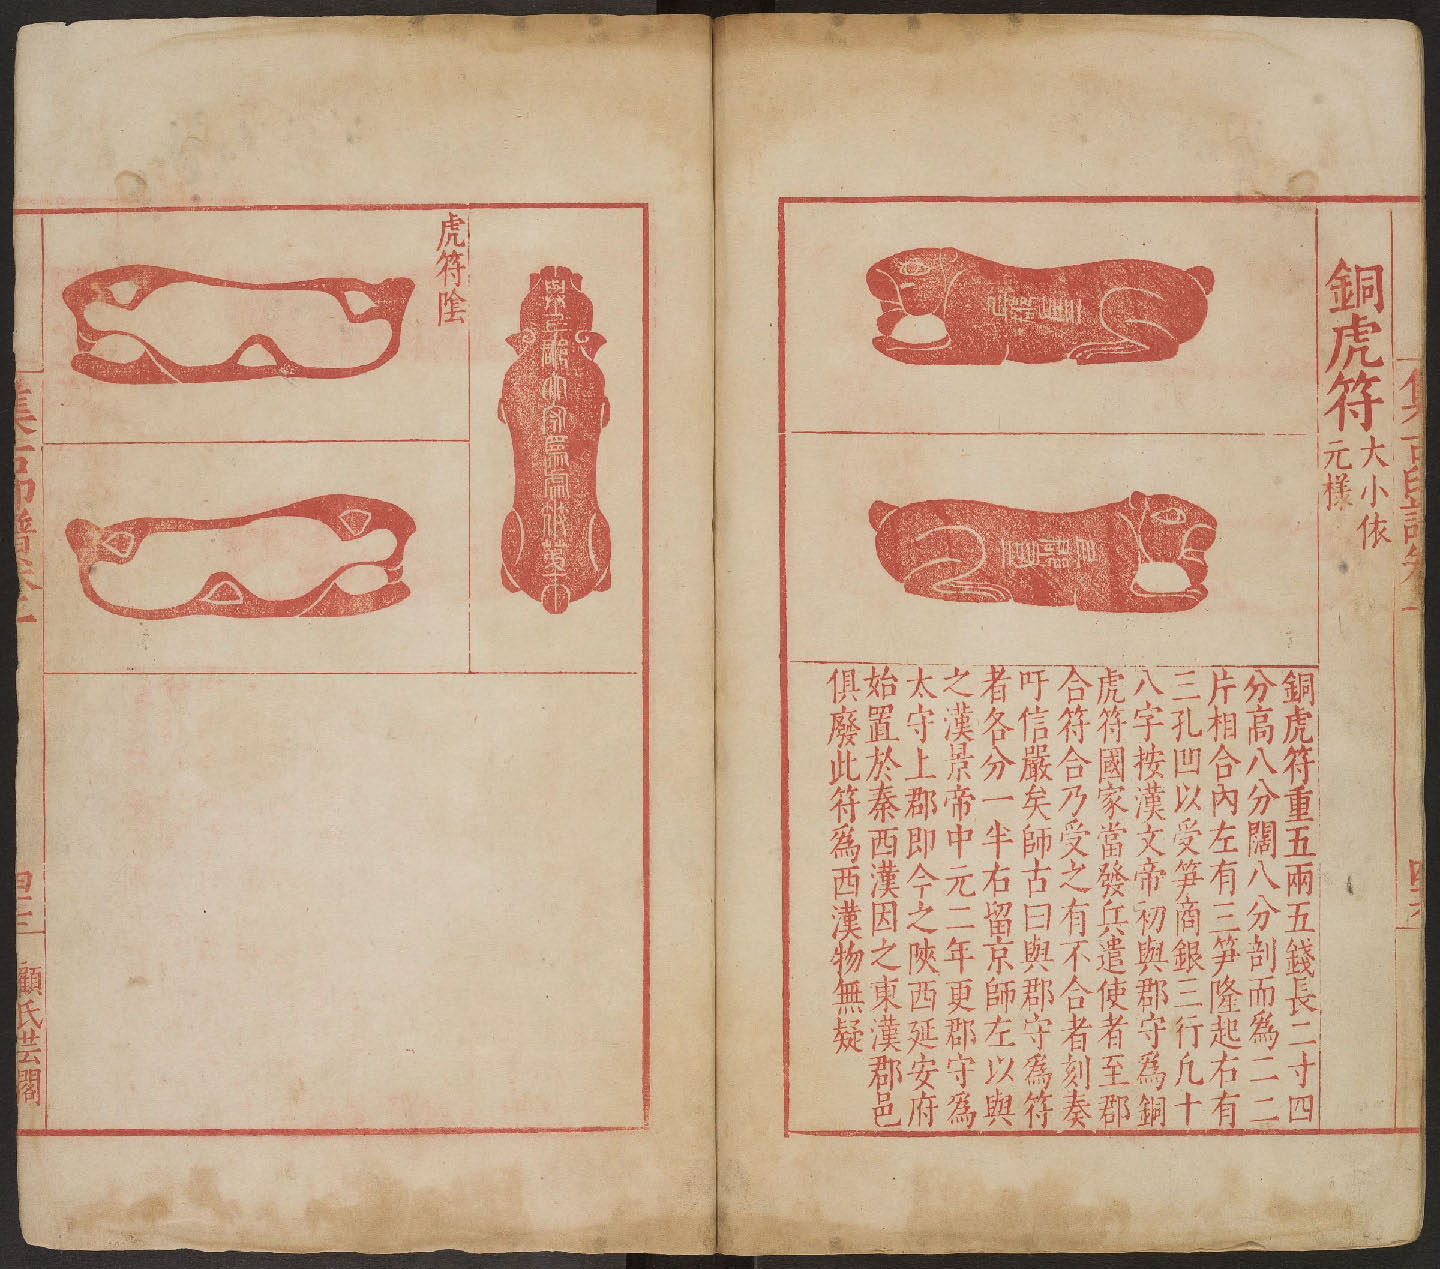 銅虎符
大小依
元樣
銅虎符重五兩五錢長二寸四
分高八分闊八分剖而爲二二
片相合內左有三笋隆起右有
三孔凹以受笋商銀三行凢十
八字按漢文帝初與郡守爲銅
虎符國家當發兵遣使者至郡
合符合乃受之有不合者刻奏
吁信嚴矣師古曰與郡守爲符
者各分一半右留京師左以與
之漢景帝中元二年更郡守爲
太守上郡即今之陝西延安府
始置於秦西漢因之東漢郡邑
俱廢此符爲西漢物無疑
虎符陰
顧氏芸閣